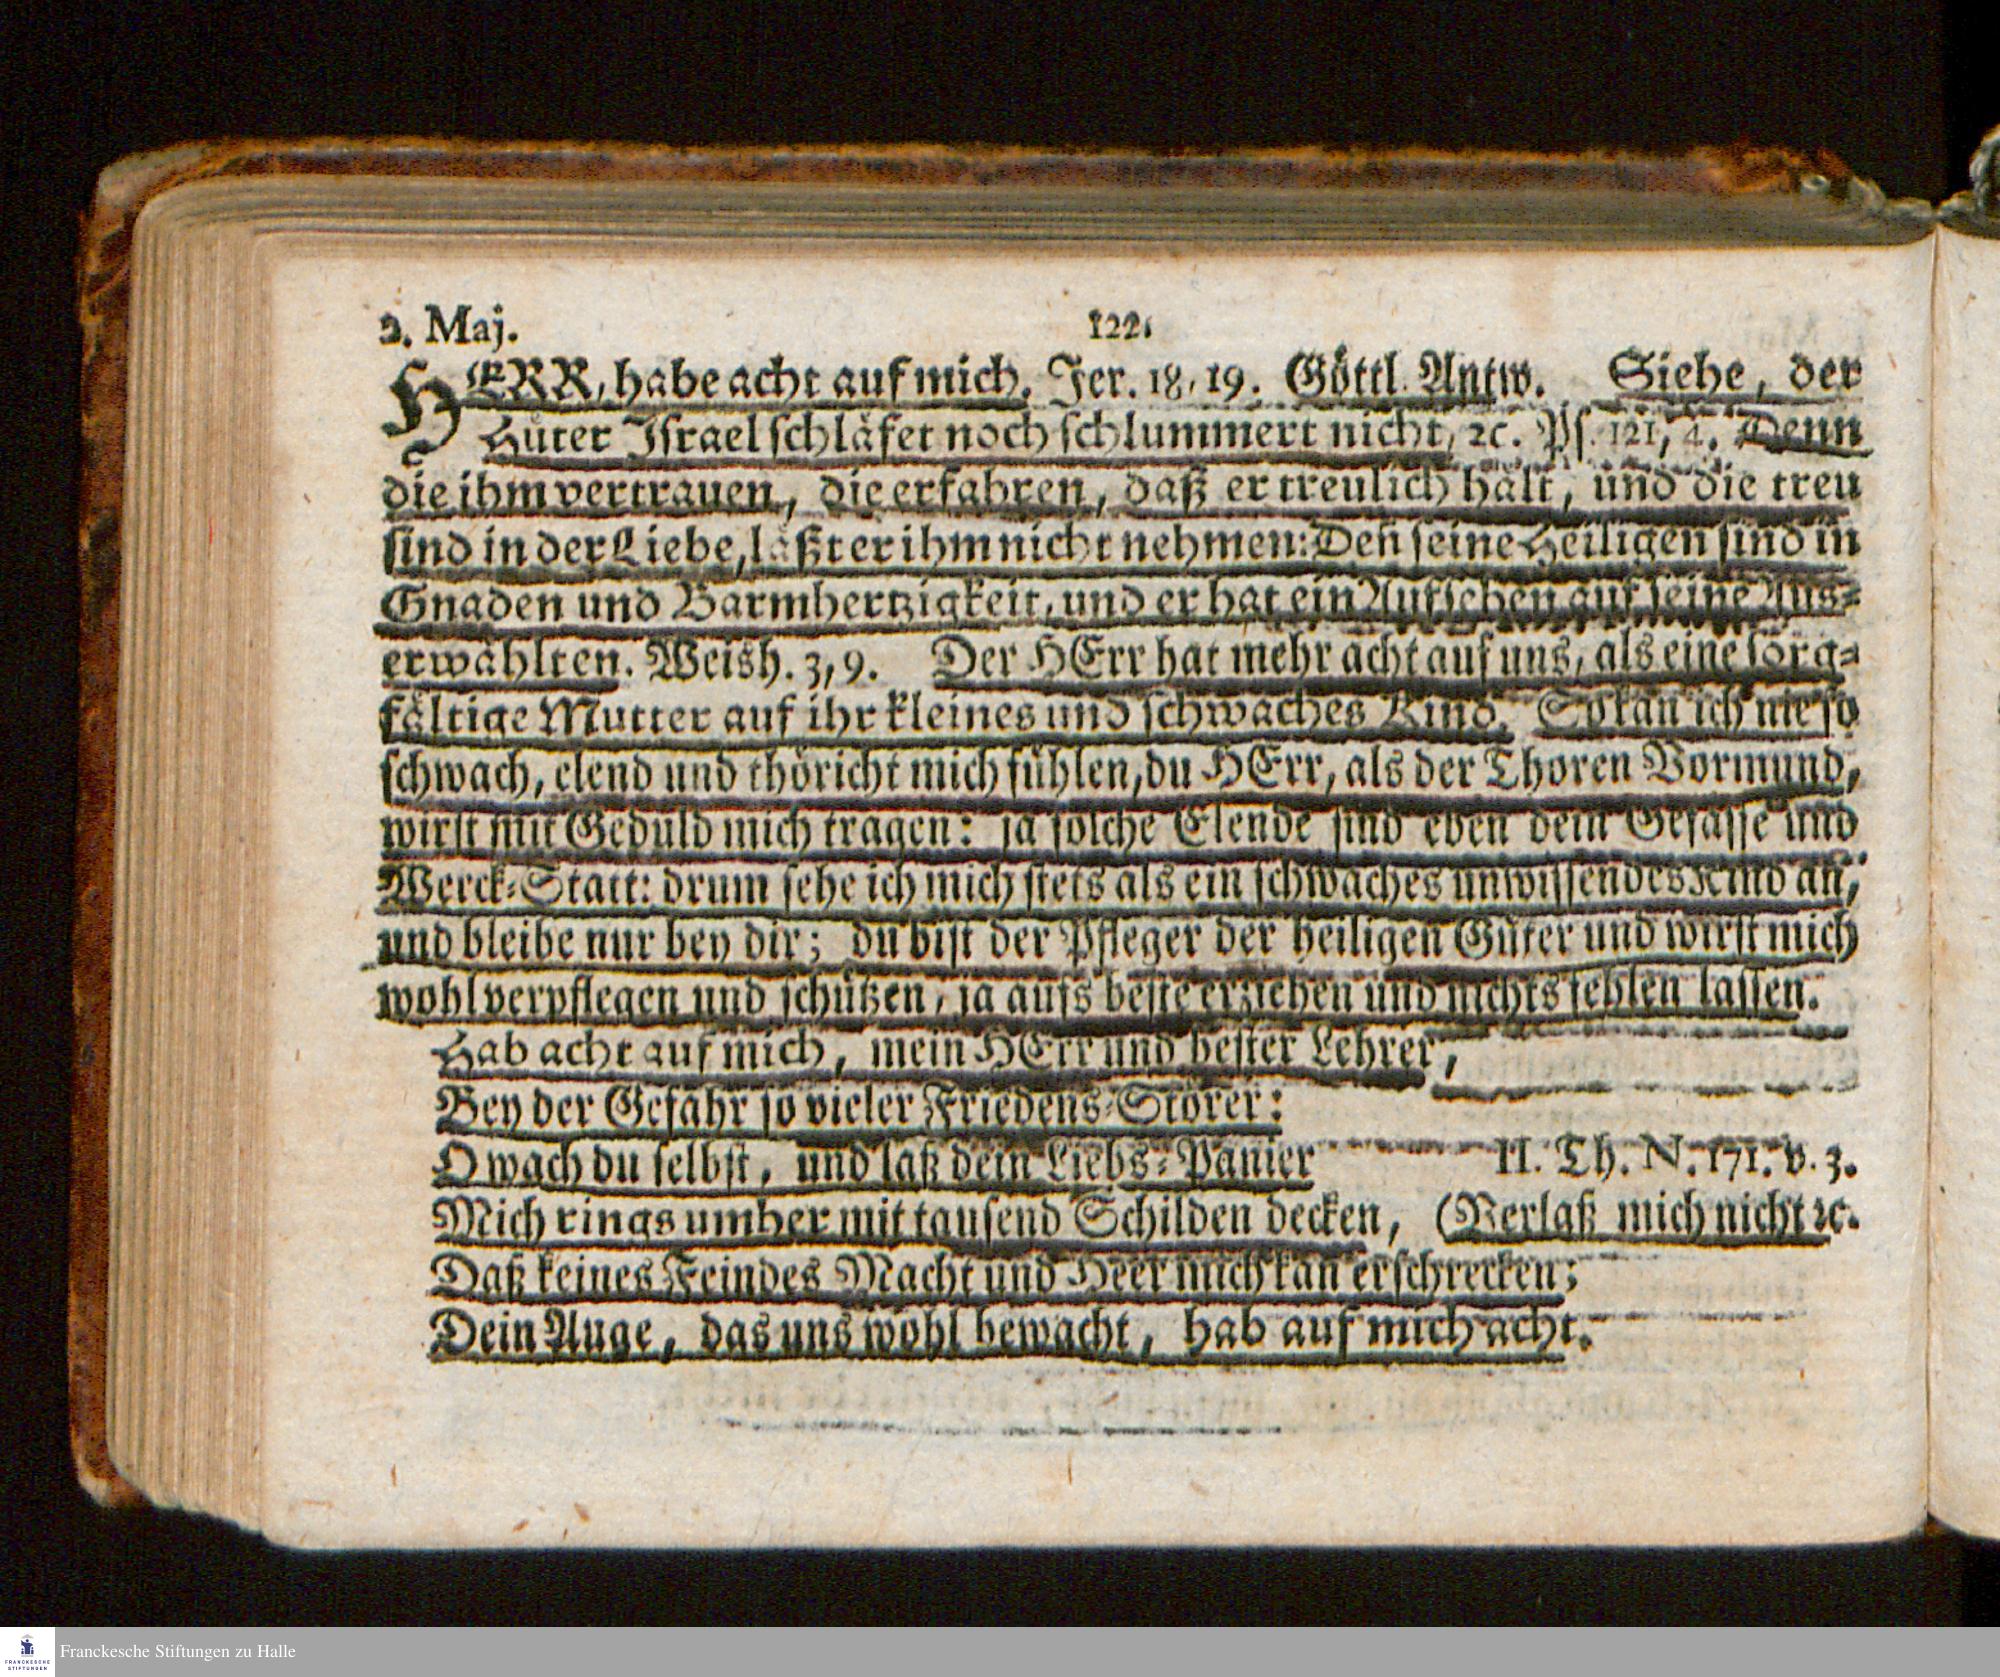 2. Maj. 122.
HERR, habe acht auf mich. Jer. 18, 19. Göttl. Antw. Siehe, der
Hüter Israel schläfet noch schlummert nicht, ꝛc. Ps. 121, 4. Denn
die ihm vertrauen, die erfahren, daß er treulich hält, und die treu
sind in der Liebe, läßt er ihm nicht nehmen: Deñ seine Heiligen sind in
Gnaden und Barmhertzigkeit, und er hat ein Aufsehen auf seine Aus-
erwählten. Weish. 3, 9. Der HErr hat mehr acht auf uns, als eine sorg-
fältige Mutter auf ihr kleines und schwaches Kind. So kan ich nie so
schwach, elend und thöricht mich fühlen, du HErr, als der Thoren Vormund,
wirst mit Geduld mich tragen: ja solche Elende sind eben dein Gefässe und
Werck-Statt: drum sehe ich mich stets als ein schwaches unwissendes Kind an,
und bleibe nur bey dir; du bist der Pfleger der heiligen Güter und wirst mich
wohl verpflegen und schützen, ja aufs beste erziehen und nichts fehlen lassen.
Hab acht auf mich, mein HErr und bester Lehrer,
Bey der Gefahr so vieler Friedens-Störer:
O wach du selbst, und laß dein Liebs-Panier II. Th. N. 171. v. 3.
Mich rings umher mit tausend Schilden decken, (Verlaß mich nicht ꝛc.
Daß keines Feindes Macht und Heer mich kan erschrecken;
Dein Auge, das uns wohl bewacht, hab auf mich acht.
FRANCKESCHE
STIFTUNGEN
Franckesche Stiftungen zu Halle